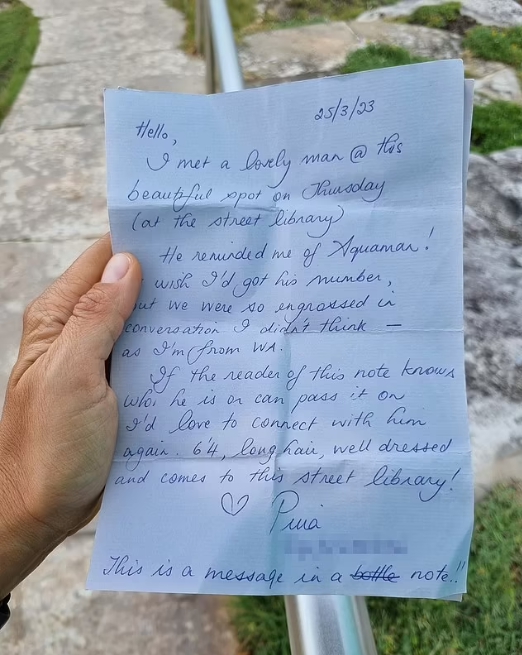 25/3/23
Hello,
I met a lovely man @ this
beautiful spot on Thursday
(at the street library)
He reminded me of Aquaman!
wish I'd got his number,
but we were so engrossed in
conversation I didn't think —
as I'm from WA.
If the reader of this note knows
who he is or can pass it on
I'd love to connect with him
again. 6'4, long hair, well dressed
and comes to this street library!
♡ Pina
This is a message in a bottle note!!